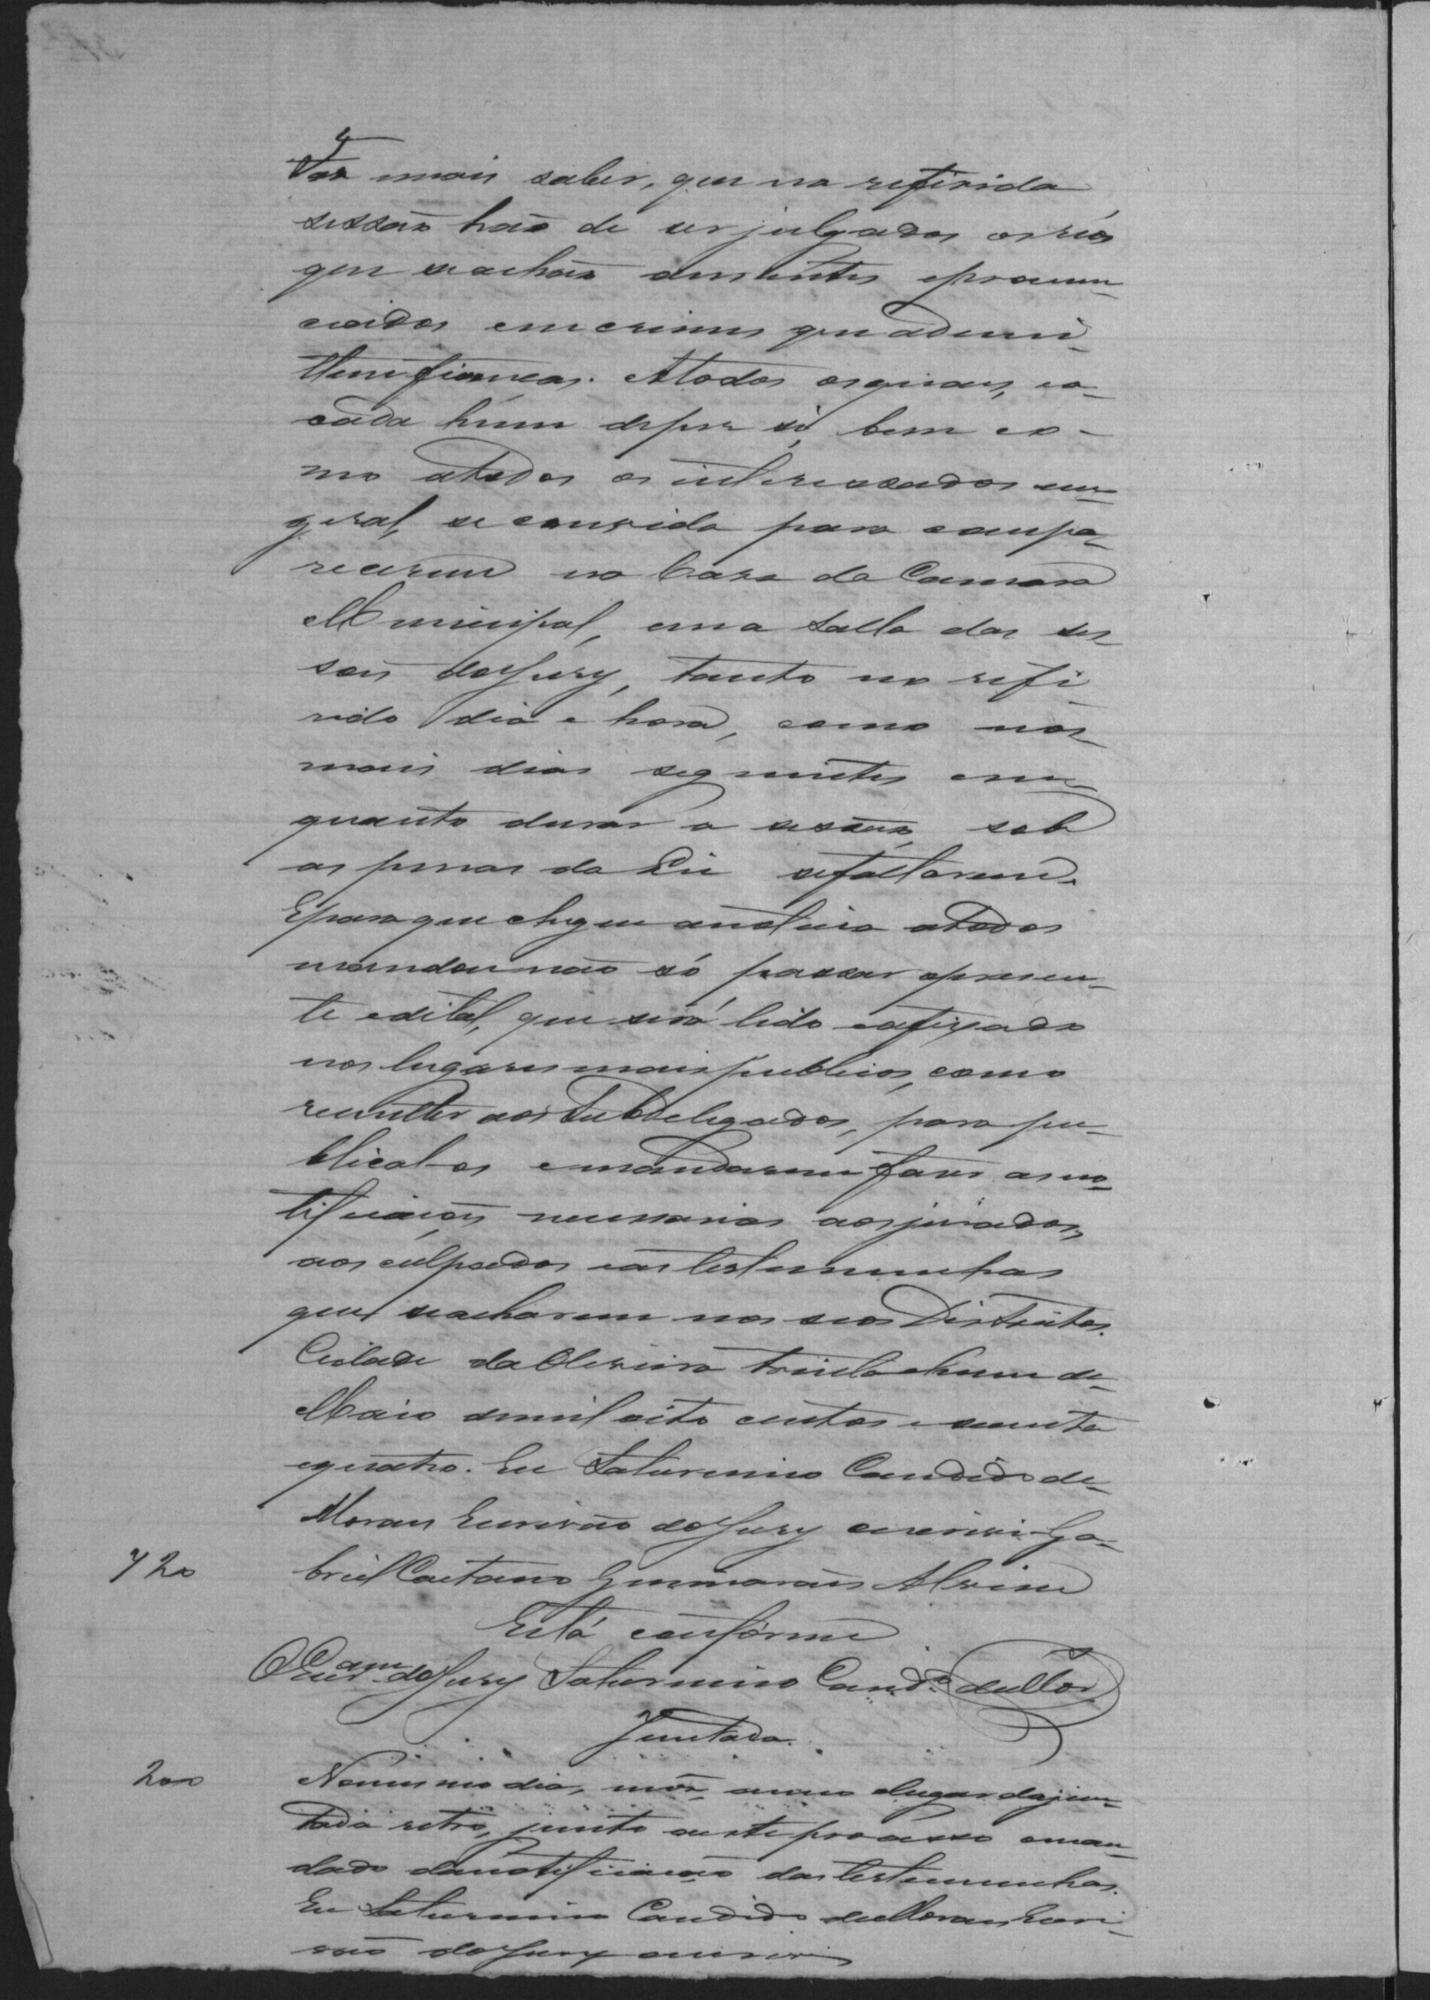 Faz mais saber, que na referida
sessão hão de ser julgados os réos
que se achão ausentes e pronun-
ciados em crimes que admi-
ttem fiancas. A todos os quaes, e a
cada hum de per si, bem co-
mo a todos os interessados em
geral, se convida para compa-
recerem na Casa da Camara
Municipal, em a Salla das ses-
sões do Jury, tanto no refe-
rido dia e hora, como nos
mais dias seguintes em-
quanto durar a sessão, sob
as penas da Lei se faltarem.
E para que chegue a noticia a todos
mandou não só passar o presen-
te edital, que será lido e afixado
nos lugares mais publicos, como
remetter aos Subdelegados, para pu-
blical-os e mandarem fazer as no-
tificações necessarias aos jurados,
aos culpados e as testemunhas
que se acharem nos seos Districtos.
Cidade da Oliveira trinta e hum de
Maio de mil oito centos e secenta
e quatro. Eu Saturnino Candido de
Moraes Escrivão do Jury escrevi. Ga-
720 briel Caetano Guimarães Alvim
Está conforme
O Escr.am do Jury Saturnino Cand.o de Mor.
Juntada.
200 No mesmo dia, mez, anno e lugar da jun-
tada retro, junto a este processo o man-
dado da notificação das testemunhas.
Eu Saturnino Candido de Moraes Escri-
vão do Jury escrevi